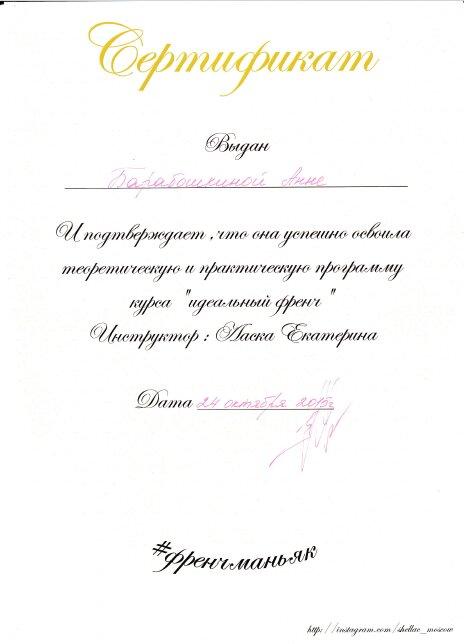 Сертификат
Выдан
Барабошкиной Анне
И подтверждает ,что она успешно освоила
теоретическую и практическую программу
курса "идеальный френч "
Инструктор : Ласка Екатерина
Дата 24 октября 2015г
#френчманьяк
http://instagram.com/shellac_moscow